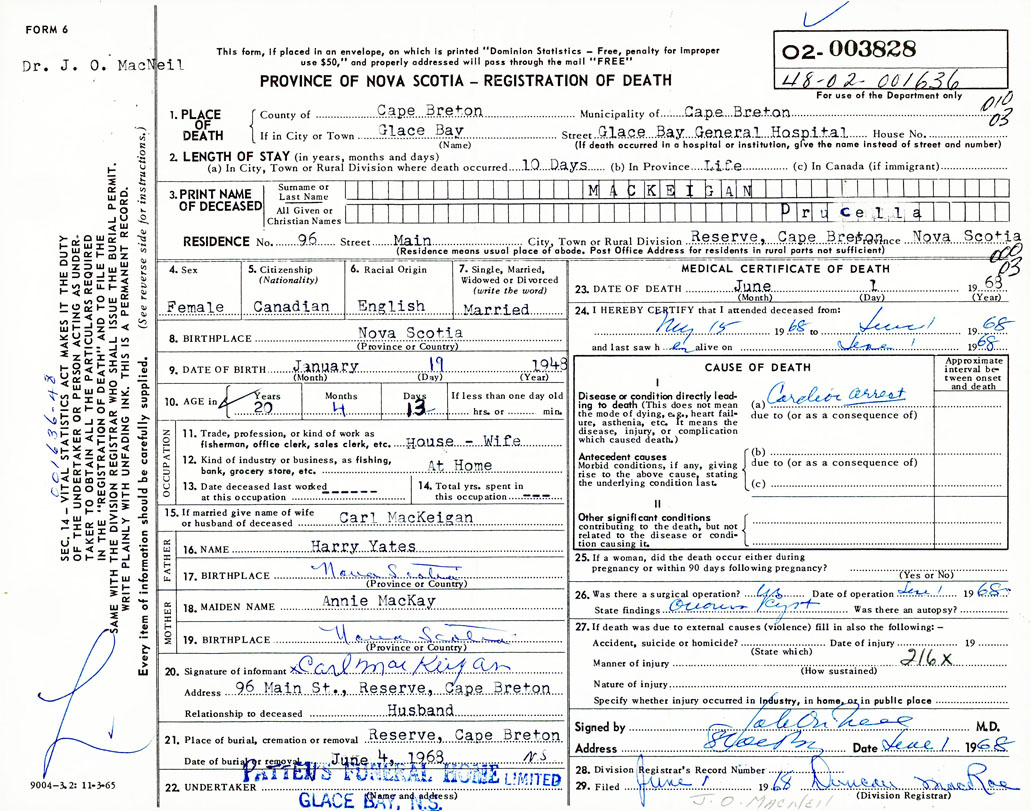 FORM 6
Dr. J. O. MacNeil
This form, if placed in an envelope, on which is printed "Dominion Statistics – Free, penalty for improper
use $50," and properly addressed will pass through the mail "FREE"
PROVINCE OF NOVA SCOTIA – REGISTRATION OF DEATH
02-003828
48-02-001636
For use of the Department only
010
03
1. PLACE OF DEATH
County of Cape Breton Municipality of Cape Breton
If in City or Town Glace Bay Street Glace Bay General Hospital House No.
(Name) (If death occurred in a hospital or institution, give the name instead of street and number)
2. LENGTH OF STAY (in years, months and days)
(a) In City, Town or Rural Division where death occurred 10 Days (b) In Province Life (c) In Canada (if immigrant)
3. PRINT NAME OF DECEASED
Surname or Last Name MACKEIGAN
All Given or Christian Names Drucella
RESIDENCE No. 96 Street Main City, Town or Rural Division Reserve, Cape Breton Province Nova Scotia
(Residence means usual place of abode. Post Office Address for residents in rural parts not sufficient)
000
03
4. Sex
Female
5. Citizenship (Nationality)
Canadian
6. Racial Origin
English
7. Single, Married, Widowed or Divorced (write the word)
Married
8. BIRTHPLACE Nova Scotia
(Province or Country)
9. DATE OF BIRTH January 19 1948
(Month) (Day) (Year)
10. AGE in Years Months Days If less than one day old
20 4 13 hrs. or min.
OCCUPATION
11. Trade, profession, or kind of work as
fisherman, office clerk, sales clerk, etc. House - Wife
12. Kind of industry or business, as fishing,
bank, grocery store, etc. At Home
13. Date deceased last worked
at this occupation ------
14. Total yrs. spent in
this occupation ---
15. If married give name of wife
or husband of deceased Carl MacKeigan
FATHER
16. NAME Harry Yates
17. BIRTHPLACE Nova Scotia
(Province or Country)
MOTHER
18. MAIDEN NAME Annie MacKay
19. BIRTHPLACE Nova Scotia
(Province or Country)
20. Signature of informant x Carl MacKeigan
Address 96 Main St., Reserve, Cape Breton
Relationship to deceased Husband
21. Place of burial, cremation or removal Reserve, Cape Breton
Date of burial or removal June 4, 1968 NS
22. UNDERTAKER PATTEN'S FUNERAL HOME LIMITED
(Name and address)
GLACE BAY, N.S.
MEDICAL CERTIFICATE OF DEATH
23. DATE OF DEATH June 1 1968
(Month) (Day) (Year)
24. I HEREBY CERTIFY that I attended deceased from:
May 15 1968 to June 1 1968
and last saw h er alive on June 1 1968
CAUSE OF DEATH
Approximate interval between onset and death
I
Disease or condition directly leading
to death (This does not mean
the mode of dying, e.g., heart failure,
asthenia, etc. It means the
disease, injury, or complication
which caused death.)
(a) Cardiac arrest
due to (or as a consequence of)
Antecedent causes
Morbid conditions, if any, giving
rise to the above cause, stating
the underlying condition last.
(b)
due to (or as a consequence of)
(c)
II
Other significant conditions
contributing to the death, but not
related to the disease or condition
causing it.
25. If a woman, did the death occur either during
pregnancy or within 90 days following pregnancy?
(Yes or No)
26. Was there a surgical operation? yes Date of operation June 1 1968
State findings Ovarian Kyst Was there an autopsy?
27. If death was due to external causes (violence) fill in also the following: –
Accident, suicide or homicide? Date of injury 19
(State which)
Manner of injury 216x
(How sustained)
Nature of injury
Specify whether injury occurred in Industry, in home, or in public place
Signed by M.D.
Address Date June 1 1968
28. Division Registrar's Record Number
29. Filed June 1 1968 Duncan MacRae
(Division Registrar)
J. O. MACNEIL
9004–3.2: 11-3-65
001636-48
SEC. 14 – VITAL STATISTICS ACT MAKES IT THE DUTY
OF THE UNDERTAKER OR PERSON ACTING AS UNDERTAKER
TO OBTAIN ALL THE PARTICULARS REQUIRED
IN THE "REGISTRATION OF DEATH" AND TO FILE THE
SAME WITH THE DIVISION REGISTRAR WHO SHALL ISSUE THE BURIAL PERMIT.
WRITE PLAINLY WITH UNFADING INK. THIS IS A PERMANENT RECORD.
Every item of information should be carefully supplied. (See reverse side for instructions.)